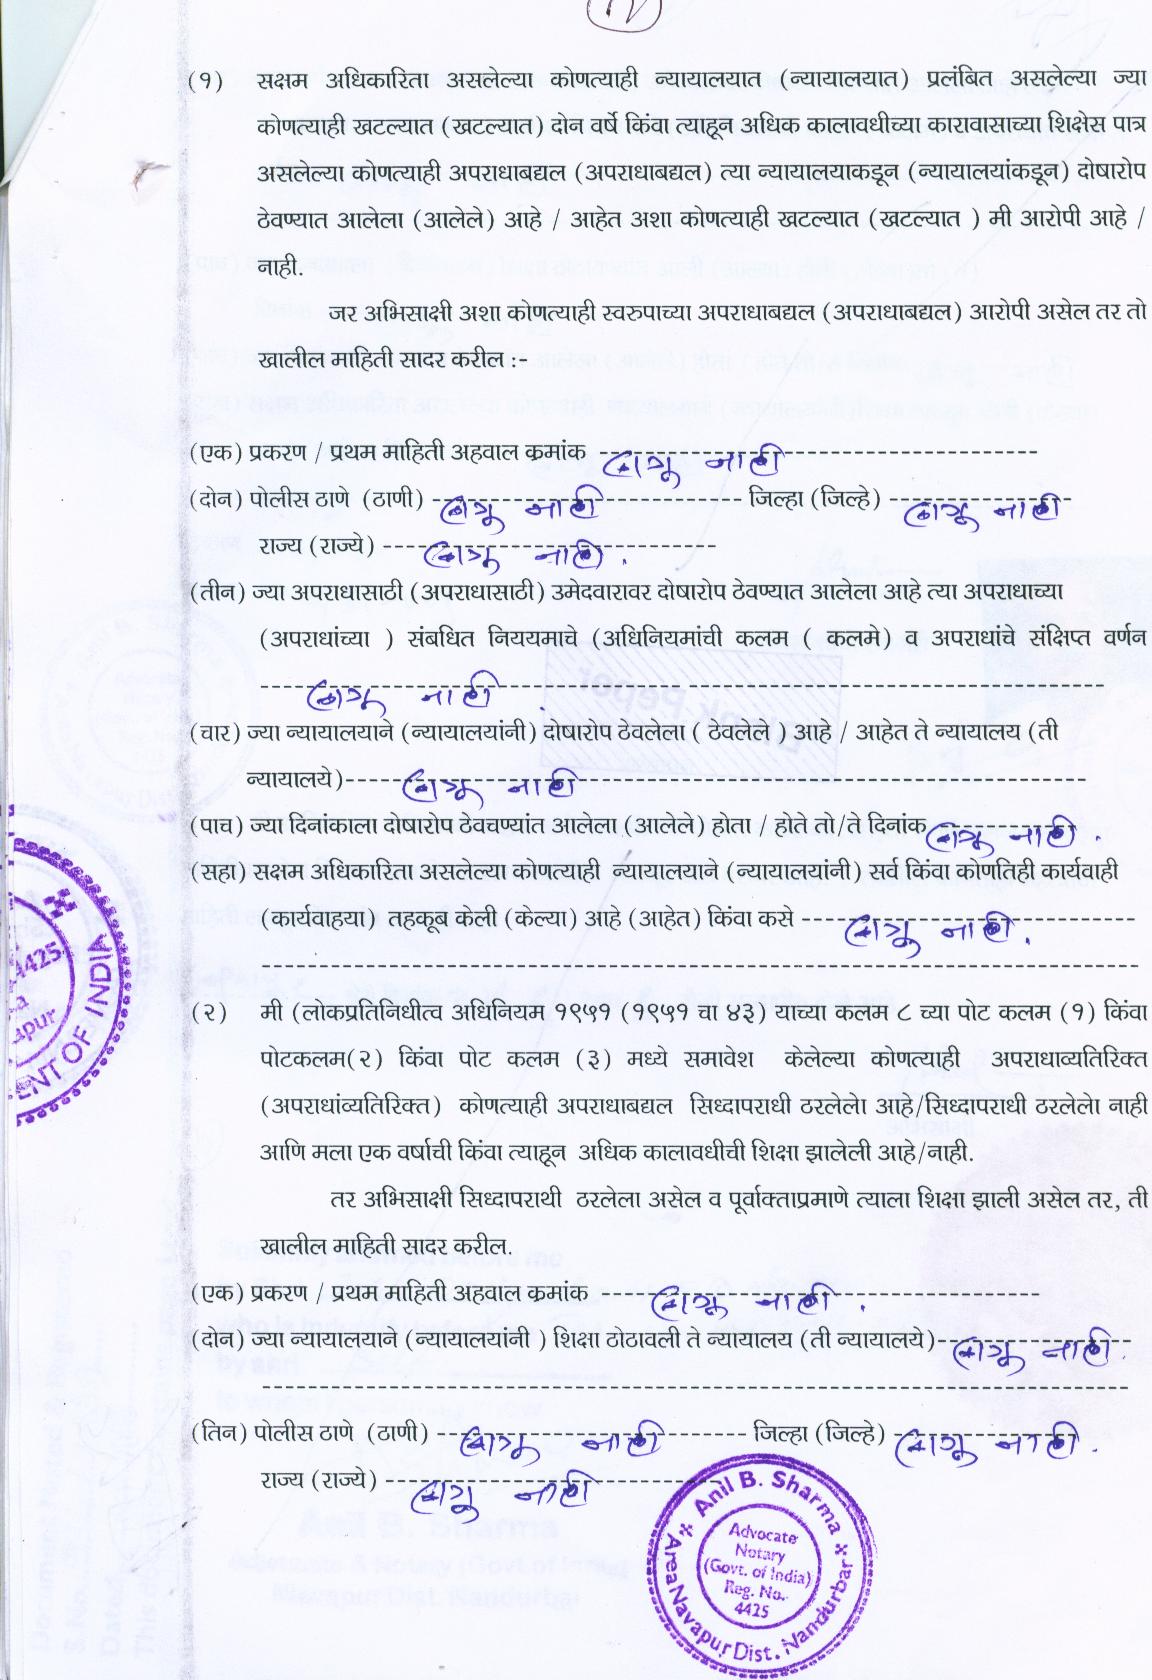 (१) सक्षम अधिकारिता असलेल्या कोणत्याही न्यायालयात (न्यायालयात) प्रलंबित असलेल्या ज्या
कोणत्याही खटल्यात (खटल्यात) दोन वर्षे किंवा त्याहून अधिक कालावधीच्या कारावासाच्या शिक्षेस पात्र
असलेल्या कोणत्याही अपराधाबद्यल (अपराधाबद्यल) त्या न्यायालयाकडून (न्यायालयांकडून) दोषारोप
ठेवण्यात आलेला (आलेले) आहे / आहेत अशा कोणत्याही खटल्यात (खटल्यात ) मी आरोपी आहे /
नाही.
जर अभिसाक्षी अशा कोणत्याही स्वरुपाच्या अपराधाबद्यल (अपराधाबद्यल) आरोपी असेल तर तो
खालील माहिती सादर करील :-
(एक) प्रकरण / प्रथम माहिती अहवाल क्रमांक लागू नाही
(दोन) पोलीस ठाणे (ठाणी) लागू नाही जिल्हा (जिल्हे) लागू नाही
राज्य (राज्ये) लागू नाही.
(तीन) ज्या अपराधासाठी (अपराधासाठी) उमेदवारावर दोषारोप ठेवण्यात आलेला आहे त्या अपराधाच्या
(अपराधांच्या ) संबधित नियममाचे (अधिनियमांची कलम ( कलमे) व अपराधांचे संक्षिप्त वर्णन
लागू नाही.
(चार) ज्या न्यायालयाने (न्यायालयांनी) दोषारोप ठेवलेला ( ठेवलेले ) आहे / आहेत ते न्यायालय (ती
न्यायालये) लागू नाही
(पाच) ज्या दिनांकाला दोषारोप ठेवचण्यांत आलेला (आलेले) होता / होते तो/ते दिनांक लागू नाही.
(सहा) सक्षम अधिकारिता असलेल्या कोणत्याही न्यायालयाने (न्यायालयांनी) सर्व किंवा कोणतिही कार्यवाही
(कार्यवाहया) तहकूब केली (केल्या) आहे (आहेत) किंवा कसे लागू नाही.
(२) मी (लोकप्रतिनिधीत्व अधिनियम १९५१ (१९५१ चा ४३) याच्या कलम ८ च्या पोट कलम (१) किंवा
पोटकलम(२) किंवा पोट कलम (३) मध्ये समावेश केलेल्या कोणत्याही अपराधाव्यतिरिक्त
(अपराधांव्यतिरिक्त) कोणत्याही अपराधाबद्यल सिध्दापराधी ठरलेला आहे/सिध्दापराधी ठरलेला नाही
आणि मला एक वर्षाची किंवा त्याहून अधिक कालावधीची शिक्षा झालेली आहे/नाही.
तर अभिसाक्षी सिध्दापराथी ठरलेला असेल व पूर्वाक्ताप्रमाणे त्याला शिक्षा झाली असेल तर, ती
खालील माहिती सादर करील.
(एक) प्रकरण / प्रथम माहिती अहवाल क्रमांक लागू नाही.
(दोन) ज्या न्यायालयाने (न्यायालयांनी ) शिक्षा ठोठावली ते न्यायालय (ती न्यायालये) लागू नाही.
(तिन) पोलीस ठाणे (ठाणी) लागू नाही जिल्हा (जिल्हे) लागू नाही.
राज्य (राज्ये) लागू नाही
Anil B. Sharma
Advocate
Notary
(Govt. of India)
Reg. No.
4425
Area Navapur Dist. Nandurbar
4425
apur
ENT OF INDIA